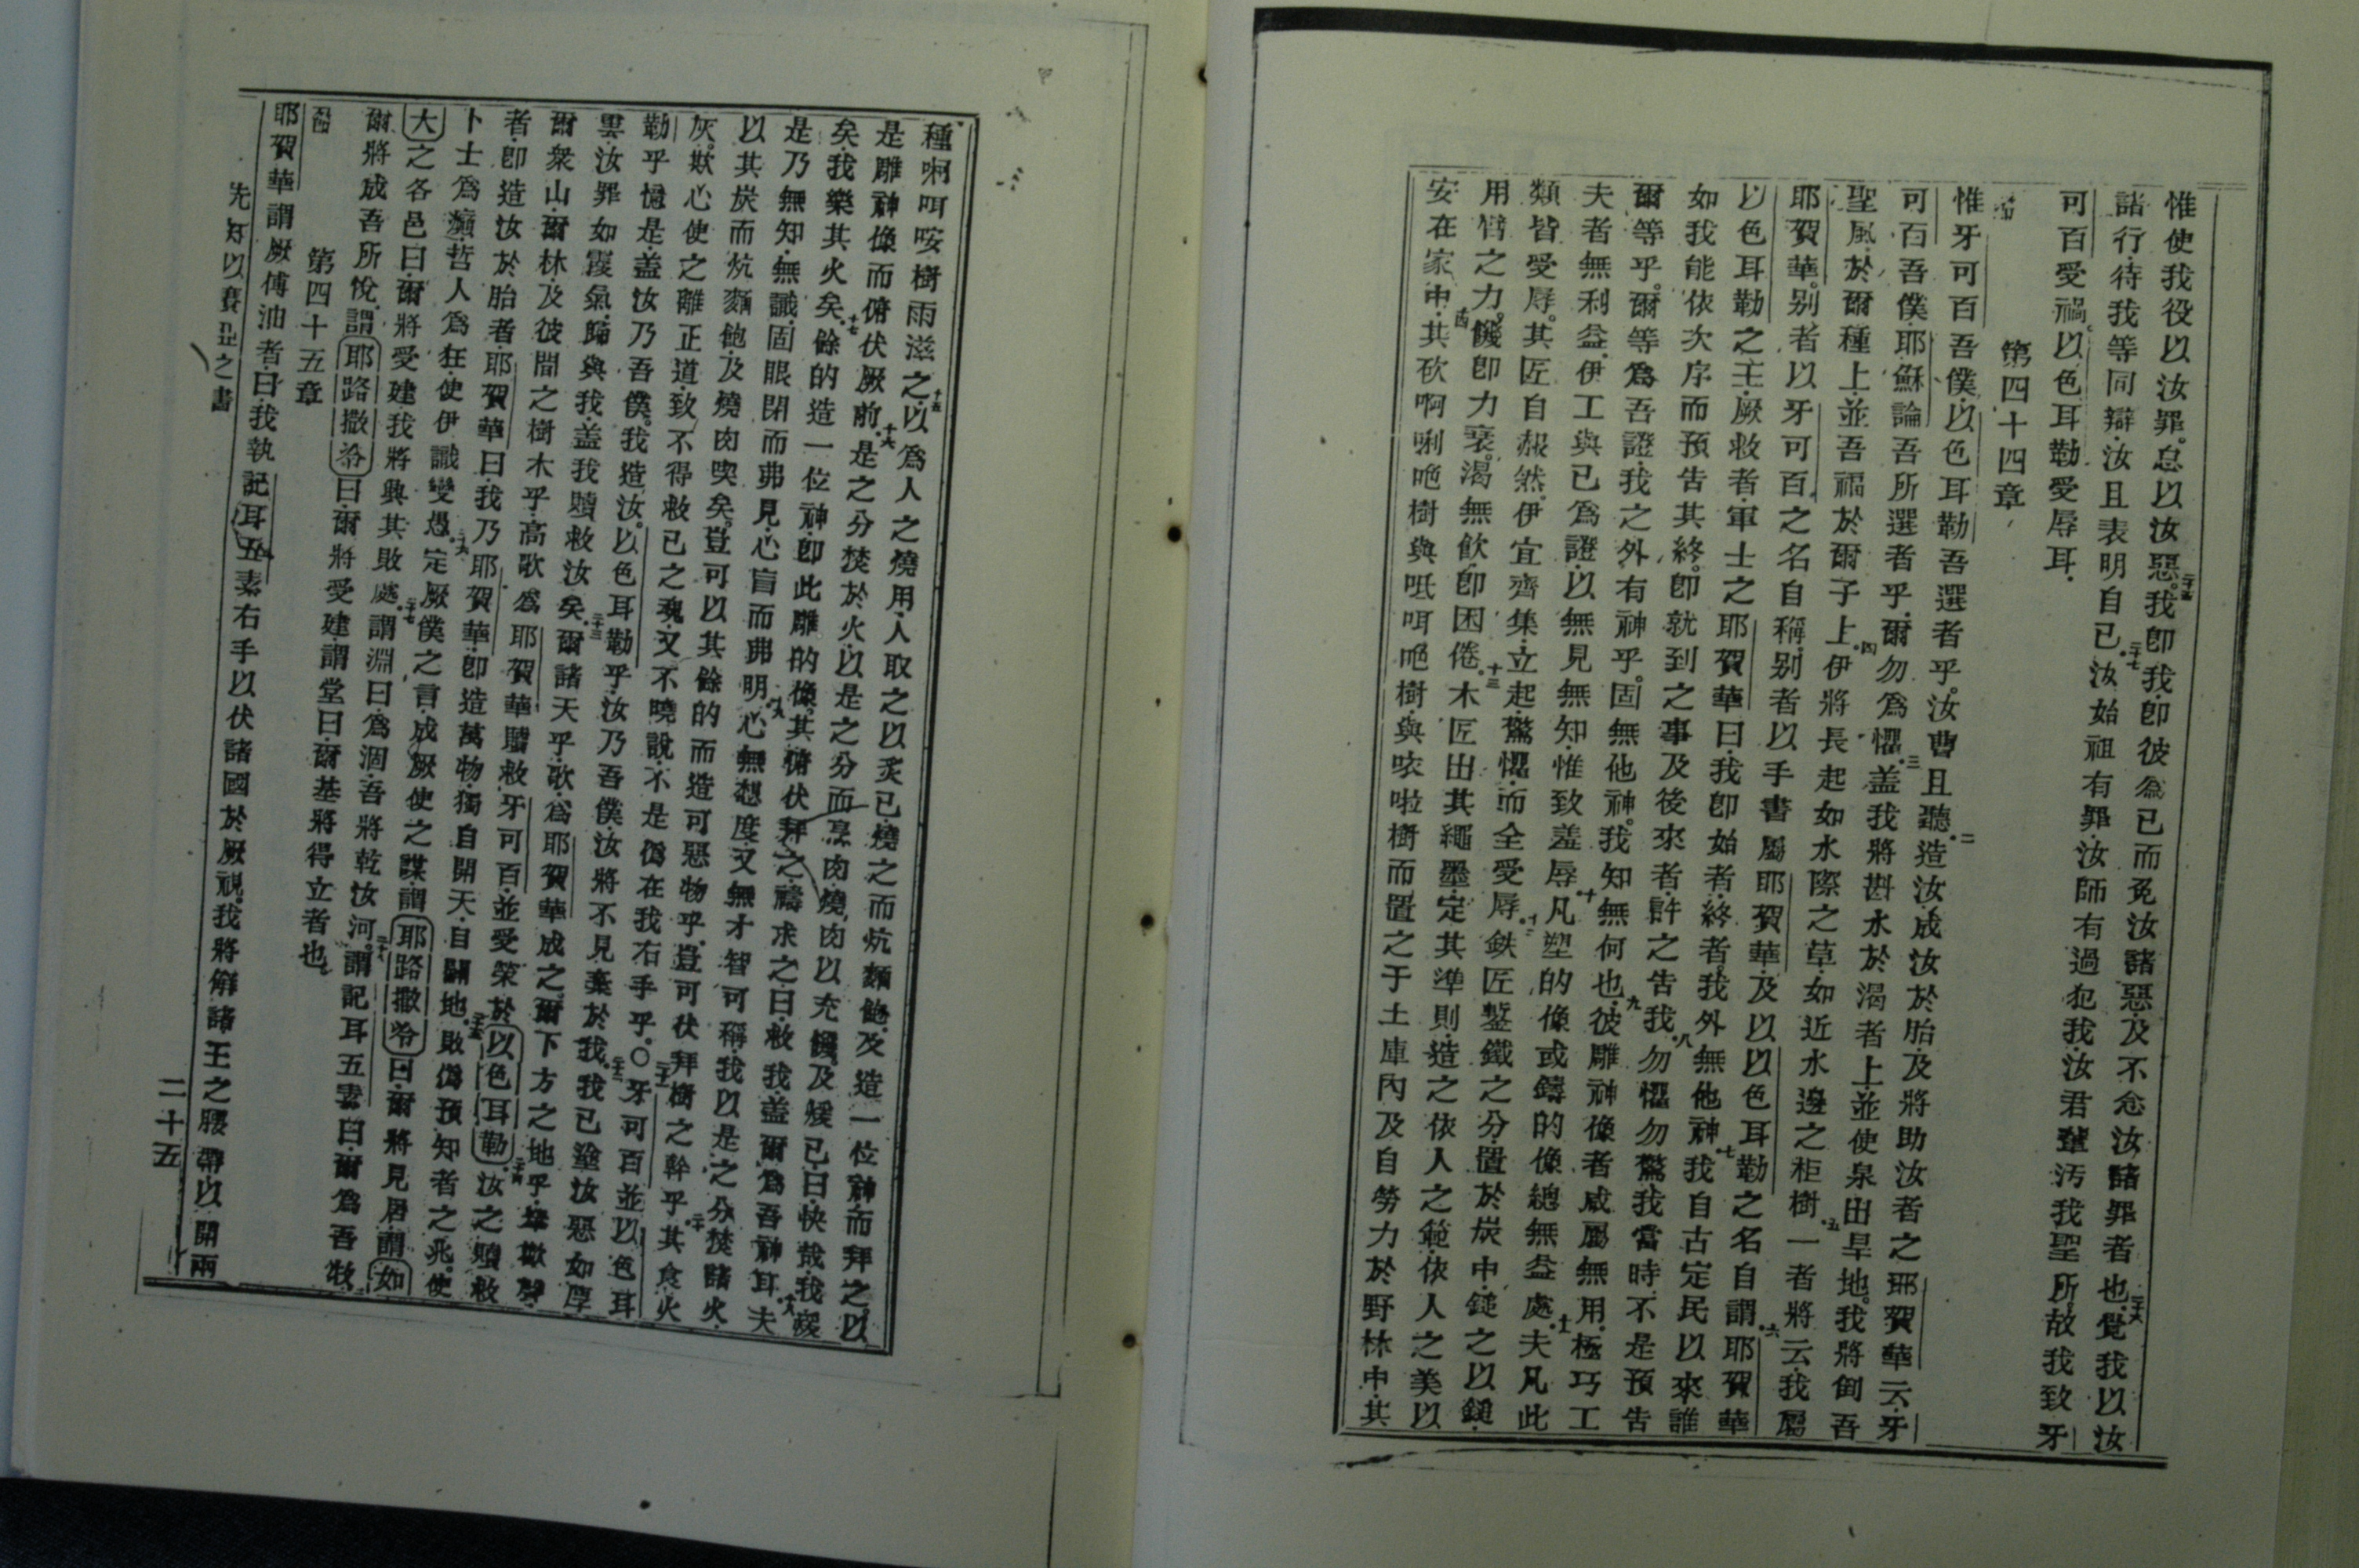 惟使我役以汝罪。息以汝惡。二十五我卽我卽彼為已而免汝諸惡及不念汝諸罪者也。二十六覺我以汝
諸行待我等同辯汝且表明自已。二十七汝始祖有罪汝師有過犯我汝君輩污我聖所。故我致牙
可百受禍。以色耳勒受辱耳
第四十四章
惟牙可百吾僕以色耳勒吾選者乎。汝曹且聽。二造汝成汝於胎及將助汝者之耶賀華云牙
可百吾僕耶穌論吾所選者乎爾勿為懼。三盖我將斟水於渴者上並使泉出旱地。我將倒吾
聖風於爾種上並吾福於爾子上。四伊將長起如水際之草如近水邊之柜樹。五一者將云我屬
耶賀華。别者以牙可百之名自稱别者以手書屬耶賀華及以以色耳勒之名自謂。六耶賀華
以色耳勒之王厥救者軍士之耶賀華曰我卽始者終者。我外無他神。七我自古定民以來誰
如我能依次序而預告其終。卽就到之事及後來者許之告我。八勿懼勿驚我當時不是預告
爾等乎。爾等為吾證我之外有神乎。固無他神。我知無何也。九彼雕神像者咸屬無用。極巧工
夫者無利益伊工與已為證以無見無知惟致羞辱。十凡塑的像或鑄的像總無益處。十一夫凡此
類皆受辱。其匠自赧然。伊宜齊集立起驚懼而全受辱。十二鉄匠鏨鐵之分置於炭中鎚之以鎚
用臂之力。饑卽力衰。渴無飲卽困倦。十三木匠出其繩墨定其準則造之依人之範依人之美以
安在家中。十四其砍啊唎吔樹與呧咡吔樹與咹啦樹而置之于土庫內及自勞力於野林中其
種啊咡咹樹雨滋之。十五以為人之燒用人取之以炙已燒之而炕麵飽及造一位神而拜之。以
是雕神像而俯伏厥前。十六是之分焚於火以是之分而烹肉燒肉以充饑及煖已曰快哉我煖
矣我樂其火矣。十七餘的造一位神卽此雕的像。其俯伏拜之禱求之曰救我盖爾為吾神耳。十八夫
是乃無知無識固眼閉而弗見心盲而弗明。十九心無想度又無才智可稱我以是之分焚諸火
以其炭而炕麵飽及燒肉喫矣。豈可以其餘的而造可惡物乎豈可伏拜樹之幹乎。二十其食火
灰。欺心使之離正道致不得救已之魂又不曉說不是偽在我右手乎。〇二十一牙可百並以色耳
勒乎憶是盖汝乃吾僕。我造汝。以色耳勒乎汝乃吾僕汝將不見棄於我。二十二我已塗汝惡如厚
雲汝罪如霞氣歸與我盖我贖救汝矣。二十三爾諸天乎歌為耶賀華成之爾下方之地乎
爾衆山爾林及彼間之樹木乎高歌為耶賀華贖救牙可百並受榮於以色耳勒。二十四汝之贖救
者卽造汝於胎者耶賀華曰我乃耶賀華卽造萬物獨自開天自闢地。二十五敗偽預知者之兆。使
卜士為癲哲人為狂使伊識變愚。二十六定厥僕之言成厥使之謀謂耶路撒冷曰爾將見居謂如
大之各邑曰爾將受建我將興其敗處。二十七謂淵曰為涸吾將乾汝河。二十八謂記耳五素曰爾為吾牧
爾將成吾所悅謂耶路撒冷曰爾將受建謂堂曰爾基將得立者也
第四十五章
耶賀華謂厥傅油者曰我執記耳五素右手以伏諸國於厥視。我將解諸王之腰帶以開兩
先知以賽亞之書
二十五